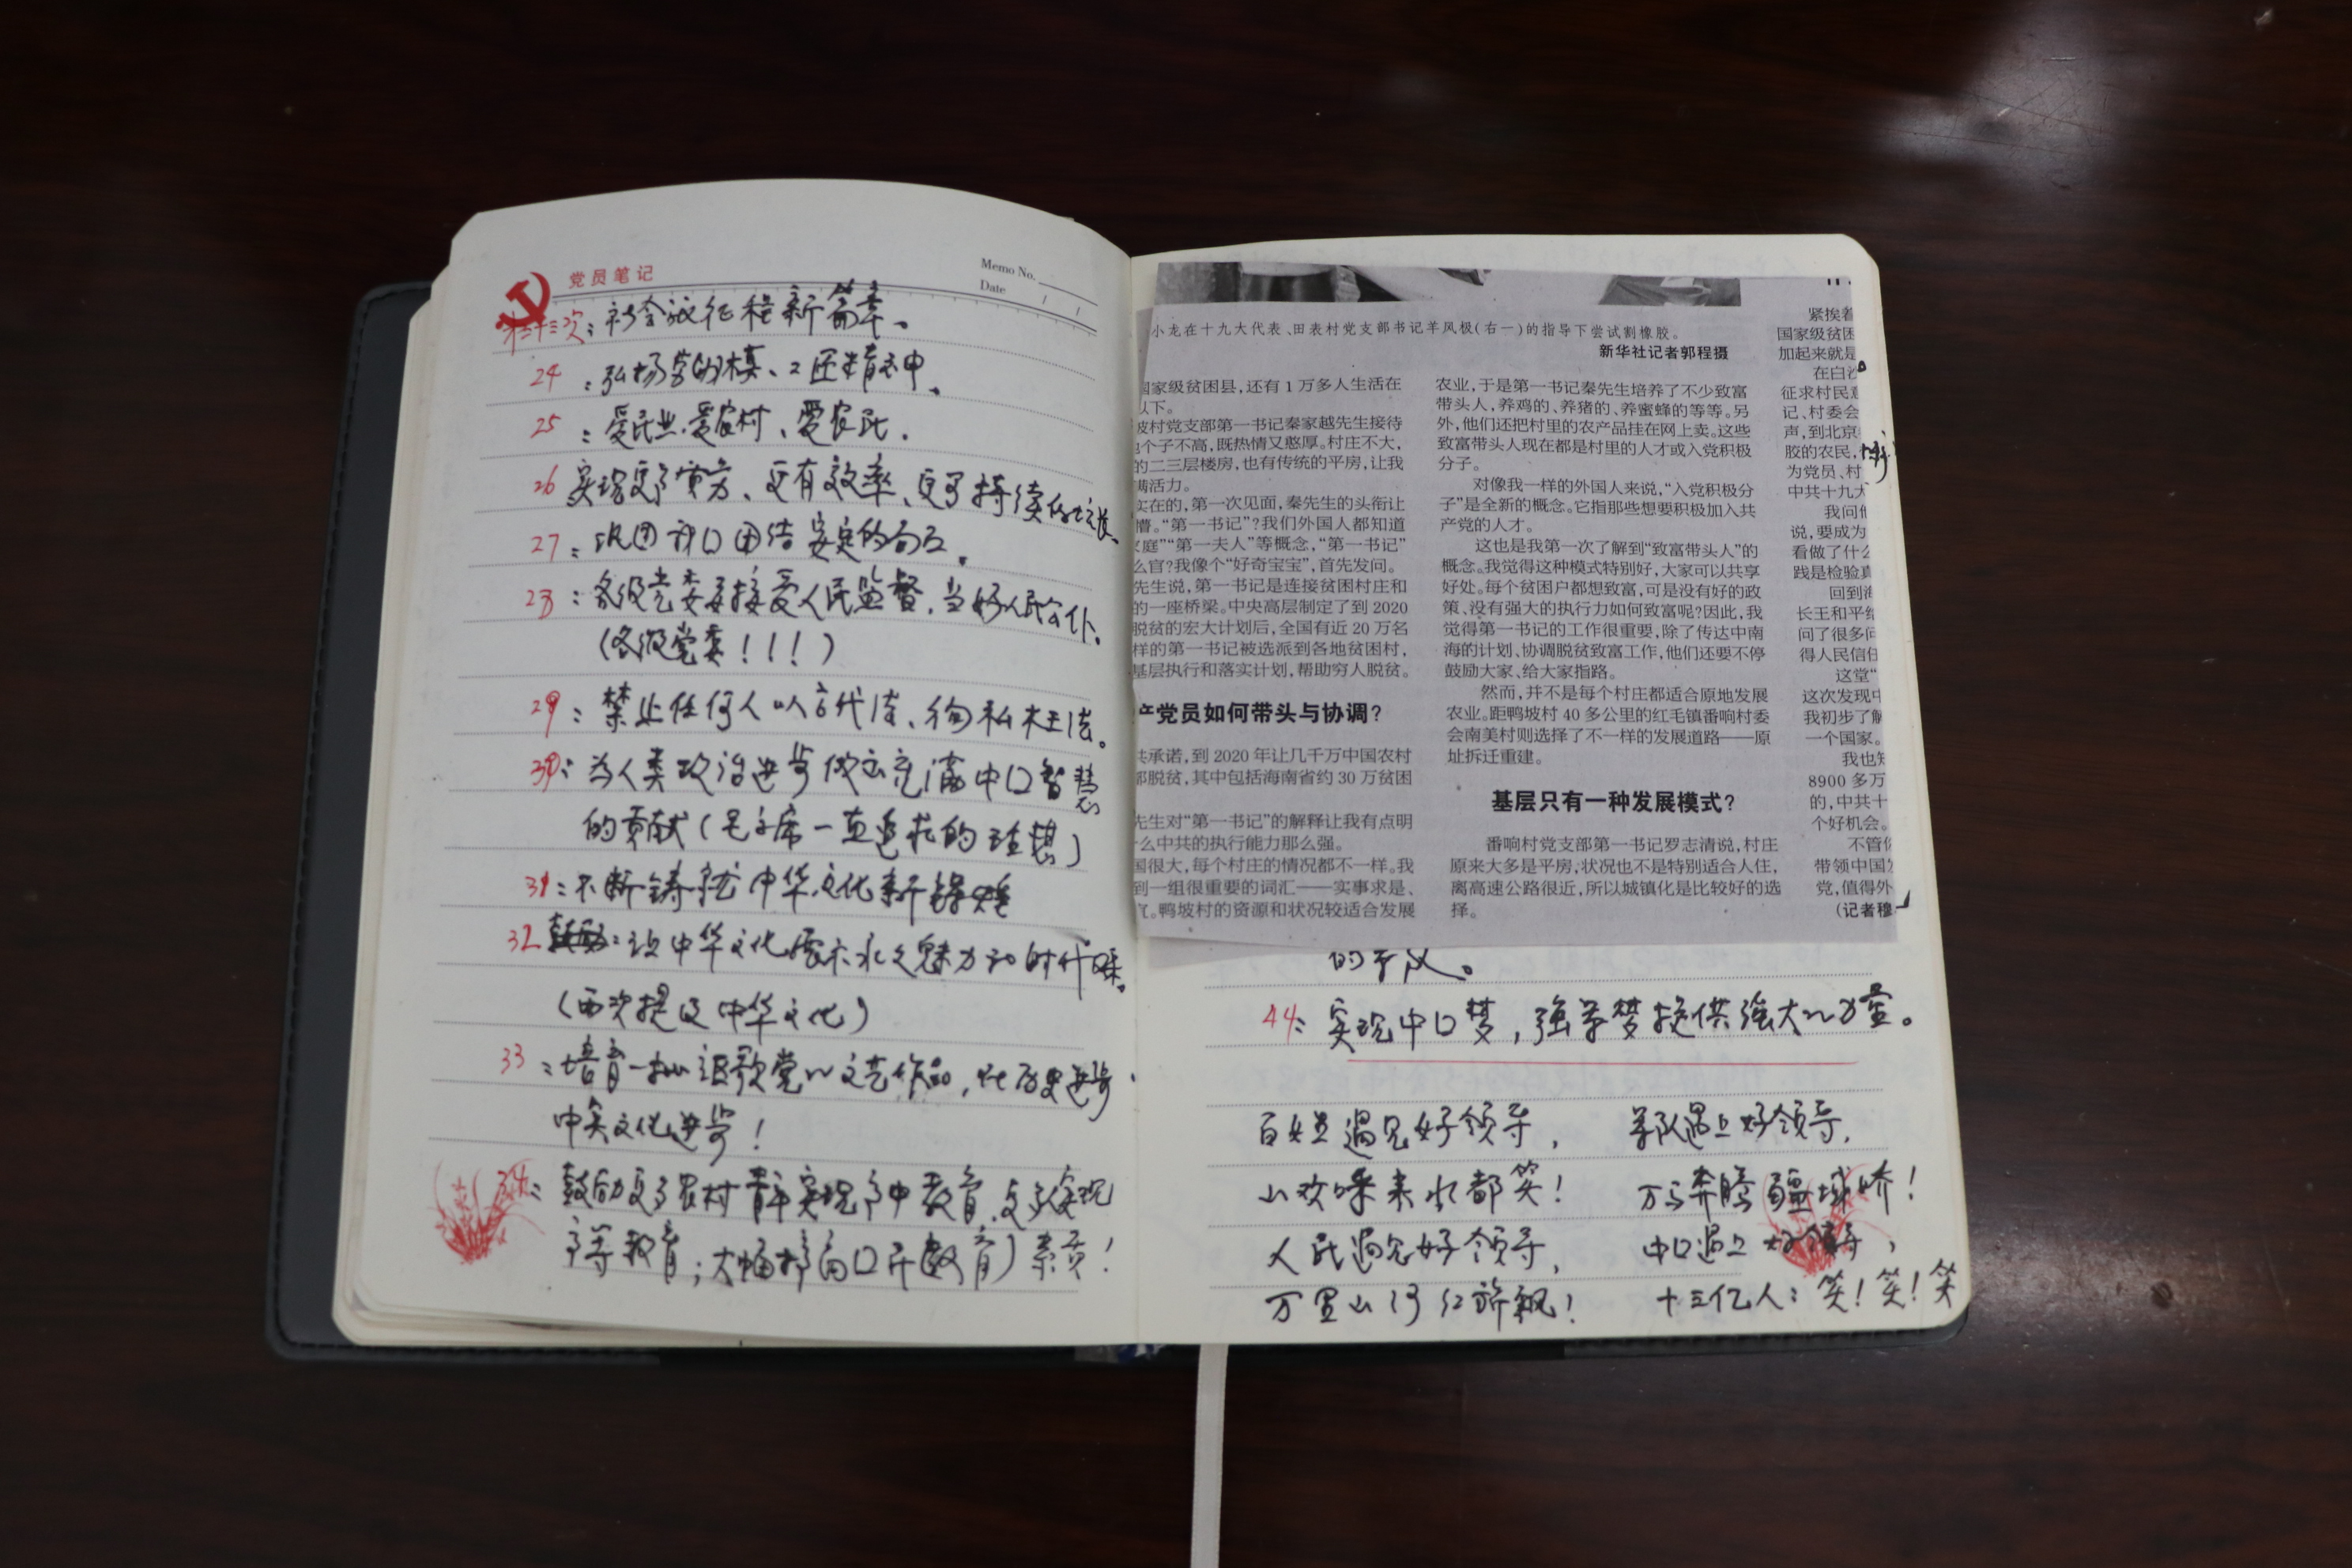 党员笔记
Memo No.
Date / /
第二十三次：社会议征程新篇章。
24：弘扬劳的模、工匠精神。
25：爱民业、爱农村、爱农民。
26 实现更高质方、更有效率、更可持续的增长。
27：巩固和口团结安定的局面。
28：各级党委要接受人民监督，当好人民公仆。
（各级党委！！！）
29：禁止任何人以言代法、徇私枉法。
30：为人类政治进步做出充满中口智慧
的贡献（毛主席一直追求的理想）
31：不断铸就中华文化新辉煌
32 ：让中华文化展示永久魅力和时代风采。
（两次提及中华文化）
33：培育一批讴歌党的文艺作品，
文化进步！
34：鼓励更多农村青年实现高中教育，更多实现
高等教育；大幅提高口开（教育）素质！
小龙在十九大代表、田表村党支部书记羊风极(右一)的指导下尝试割橡胶。
新华社记者郭程摄
国家级贫困县，还有1万多人生活在
以下。
坡村党支部第一书记秦家越先生接待
个子不高，既热情又憨厚。村庄不大，
的二三层楼房，也有传统的平房，让我
满活力。
实在的，第一次见面，秦先生的头衔让
懵。“第一书记”？我们外国人都知道
家庭”“第一夫人”等概念，“第一书记”
么官？我像个“好奇宝宝”，首先发问。
先生说，第一书记是连接贫困村庄和
的一座桥梁。中央高层制定了到2020
脱贫的宏大计划后，全国有近20万名
样的第一书记被选派到各地贫困村，
基层执行和落实计划，帮助穷人脱贫。
产党员如何带头与协调？
共承诺，到2020年让几千万中国农村
部脱贫，其中包括海南省约30万贫困
先生对“第一书记”的解释让我有点明
什么中共的执行能力那么强。
国很大，每个村庄的情况都不一样。我
到一组很重要的词汇——实事求是、
宜。鸭坡村的资源和状况较适合发展
农业，于是第一书记秦先生培养了不少致富
带头人，养鸡的、养猪的、养蜜蜂的等等。另
外，他们还把村里的农产品挂在网上卖。这些
致富带头人现在都是村里的人才或入党积极
分子。
对像我一样的外国人来说，“入党积极分
子”是全新的概念。它指那些想要积极加入共
产党的人才。
这也是我第一次了解到“致富带头人”的
概念。我觉得这种模式特别好，大家可以共享
好处。每个贫困户都想致富，可是没有好的政
策、没有强大的执行力如何致富呢？因此，我
觉得第一书记的工作很重要，除了传达中南
海的计划、协调脱贫致富工作，他们还要不停
鼓励大家、给大家指路。
然而，并不是每个村庄都适合原地发展
农业。距鸭坡村40多公里的红毛镇番响村委
会南美村则选择了不一样的发展道路——原
址拆迁重建。
基层只有一种发展模式？
番响村党支部第一书记罗志清说，村庄
原来大多是平房，状况也不是特别适合人住，
离高速公路很近，所以城镇化是比较好的选
择。
紧挨着
国家级贫困
加起来就是
在白沙
征求村民意
记、村委会
声，到北京
胶的农民，
为党员、村
中共十九大
我问他
说，要成为
看做了什么
践是检验真
回到海
长王和平给
问了很多问
得人民信任
这堂“
这次发现中
我初步了解
一个国家。
我也知
8900多万
的，中共十
个好机会。
不管你
带领中国发
党，值得外
（记者穆
44：实现中口梦，强军梦提供强大的力量。
百姓遇见好领导，
山欢呼来水都笑！
人民遇见好领导，
万里山河红旗飘！
军队遇上好领导，
万马奔腾疆域娇！
中口遇上好领导，
十三亿人：笑！笑！笑